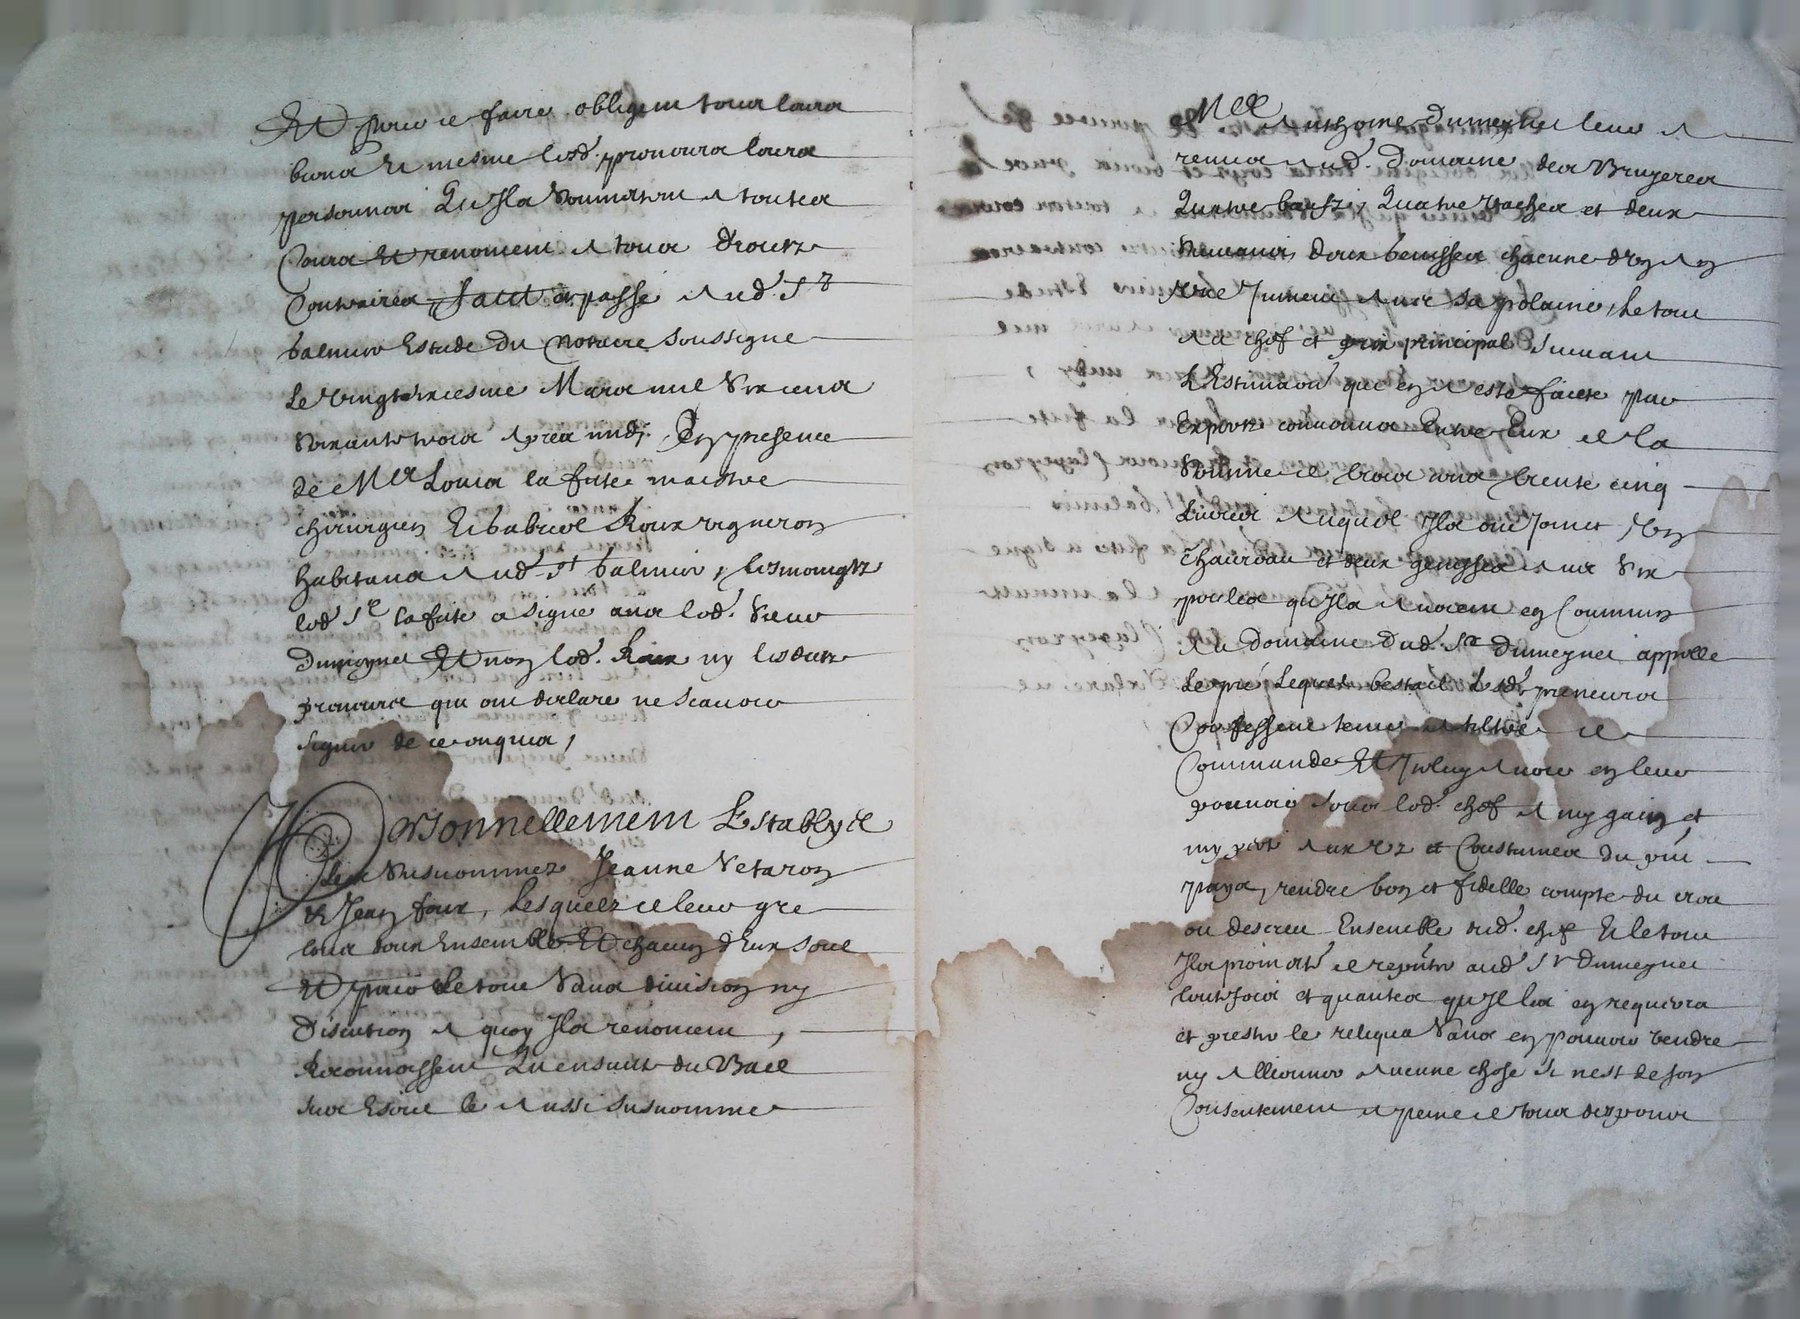 Et pour ce faire obligent tous leurs
biens et mesme lesd. preneurs leurs
personnes qu'ils soumettent a toutes
Cours et renoncent a tous droictz
Contraires, faict et passé aud. St
balmier Estude du notaire soussigne
Le vingt sixiesme Mars mil six cens
soixante trois apres midy, En presence
de Mre Louis la fuite maistre
chirurgien Et gabriel Roux vigneron
habitans aud. St balmier, tesmoingtz
led. Sr la fuite a signe avec led. sieur
Dumeynet Et non led. Roux ny lesdictz
preneurs qui ont declare ne scavoir
signer de ce enquis,
Personnellement Establyt
les susnommez Jeanne Vetaron
et Jean faux, Lesquelz de leur gre
tous deux Ensemble Et chacun d'Eux seul
Et pour le tout sans division ny
Discution a quoy Ils renoncent,
Reconnoissent qu'ensuitte du Bail
sus Escrit le aussi susnomme
Mre Anthoine Dumeynet leur a
remis aud. Domaine des Bruyeres
Quatre bœufz, Quatre vaches et deux
suivans, deux genisses chacune d'un an
Une Jument avec sa polaine, Le tout
a chef et prix principal suivant
L'Estimaon que en a este faicte par
Expertz convenus Entre Eux de la
somme de trois cens trente cinq
Livres auquel Ils ont Joinct Un
thaureau et deux genisses avec six
poules qu'ils avoient en Commun
au Domaine dud. Sr Dumeynet appelle
Le pré, Lequel bestail Lesd. preneurs
Confessent tenir a tiltre de
Commande Et Iceluy avoir en leur
pouvoir sous led. chef a my gain et
my perte aux us et Coustumes du present
pays, rendre bon et fidelle compte du crois
ou descreu Ensemble dud. chef Et le tout
Ils promettent de rep͠nter aud. Sr Dumeynet
toutefois et quantes qu'Il les en requerra
et prester le reliqua sans en pouvoir vendre
ny alliener aucune chose si n'est de son
Consentement a peine de tous despens